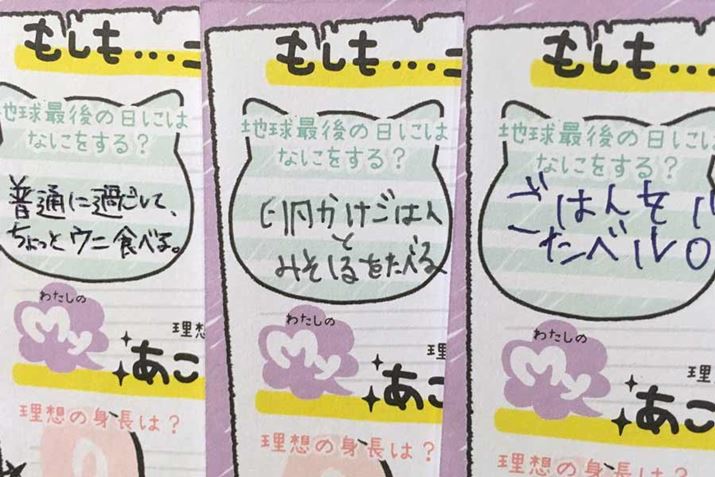 もしも…
地球最後の日には
なにをする?
普通に過ごして、
ちょっとウニ食べる。
わたしの
My
理想
あこ
理想の身長は?
もしも…
地球最後の日には
なにをする?
卵かけごはん
と
みそしるをたべる
わたしの
My
理
あこ
理想の身長は?
もしも…
地球最後の日には
なにをする?
ごはんを
たベル
わたしの
My
理
あこ
理想の身長は?